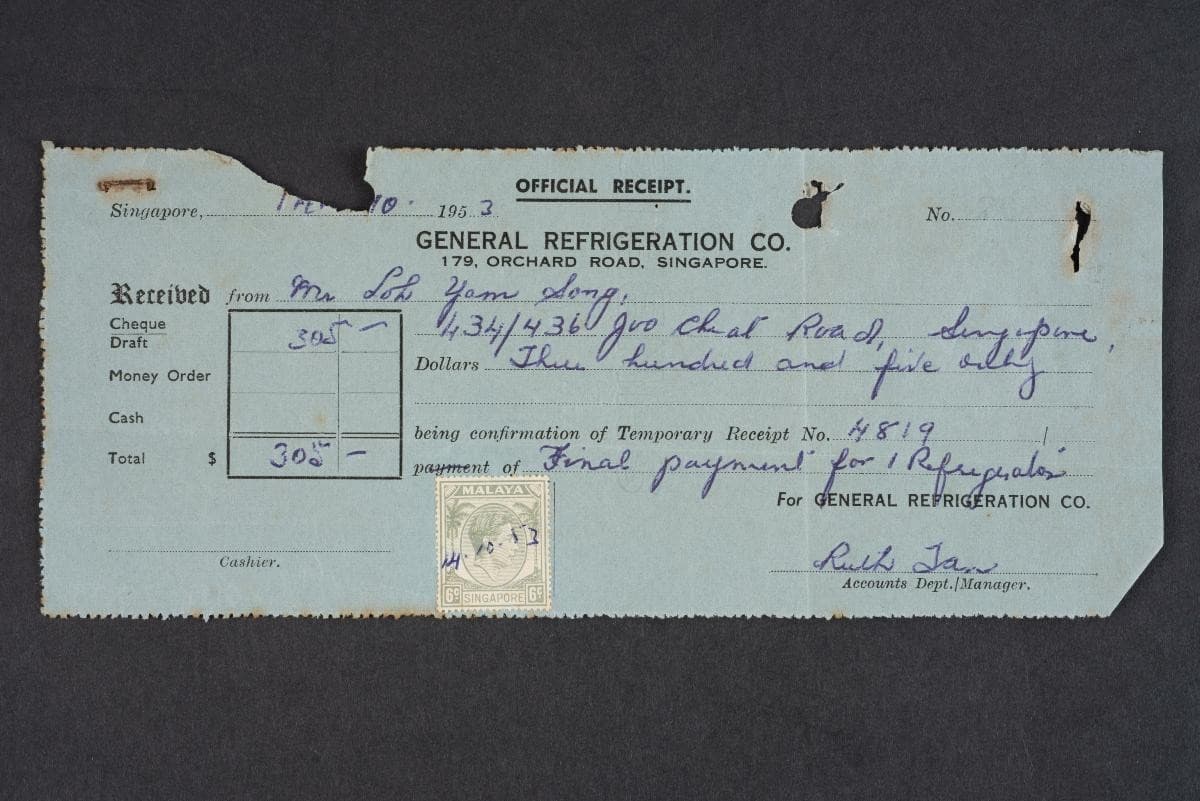 OFFICIAL RECEIPT.
Singapore, 10. 1953 No.
GENERAL REFRIGERATION CO.
179, ORCHARD ROAD, SINGAPORE.
Received from Mr Loh Yam Song,
Cheque 305 – 434/436 Joo Chiat Road, Singapore,
Draft
Dollars Three hundred and five only
Money Order
Cash
being confirmation of Temporary Receipt No. 4819 /
Total $ 305 –
payment of Final payment for 1 Refrigerator
For GENERAL REFRIGERATION CO.
MALAYA
14.10.53
6c SINGAPORE 6c
Cashier.
Ruth Tan
Accounts Dept./Manager.